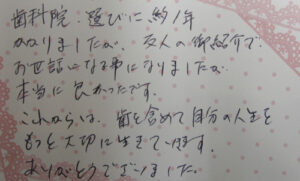 歯科院選びに約1年
かかりましたが、友人の御紹介で
お世話になる事になりましたが
本当に良かったです。
これからは、歯を含めて自分の人生を
もっと大切に生きていけます。
ありがとうございました。